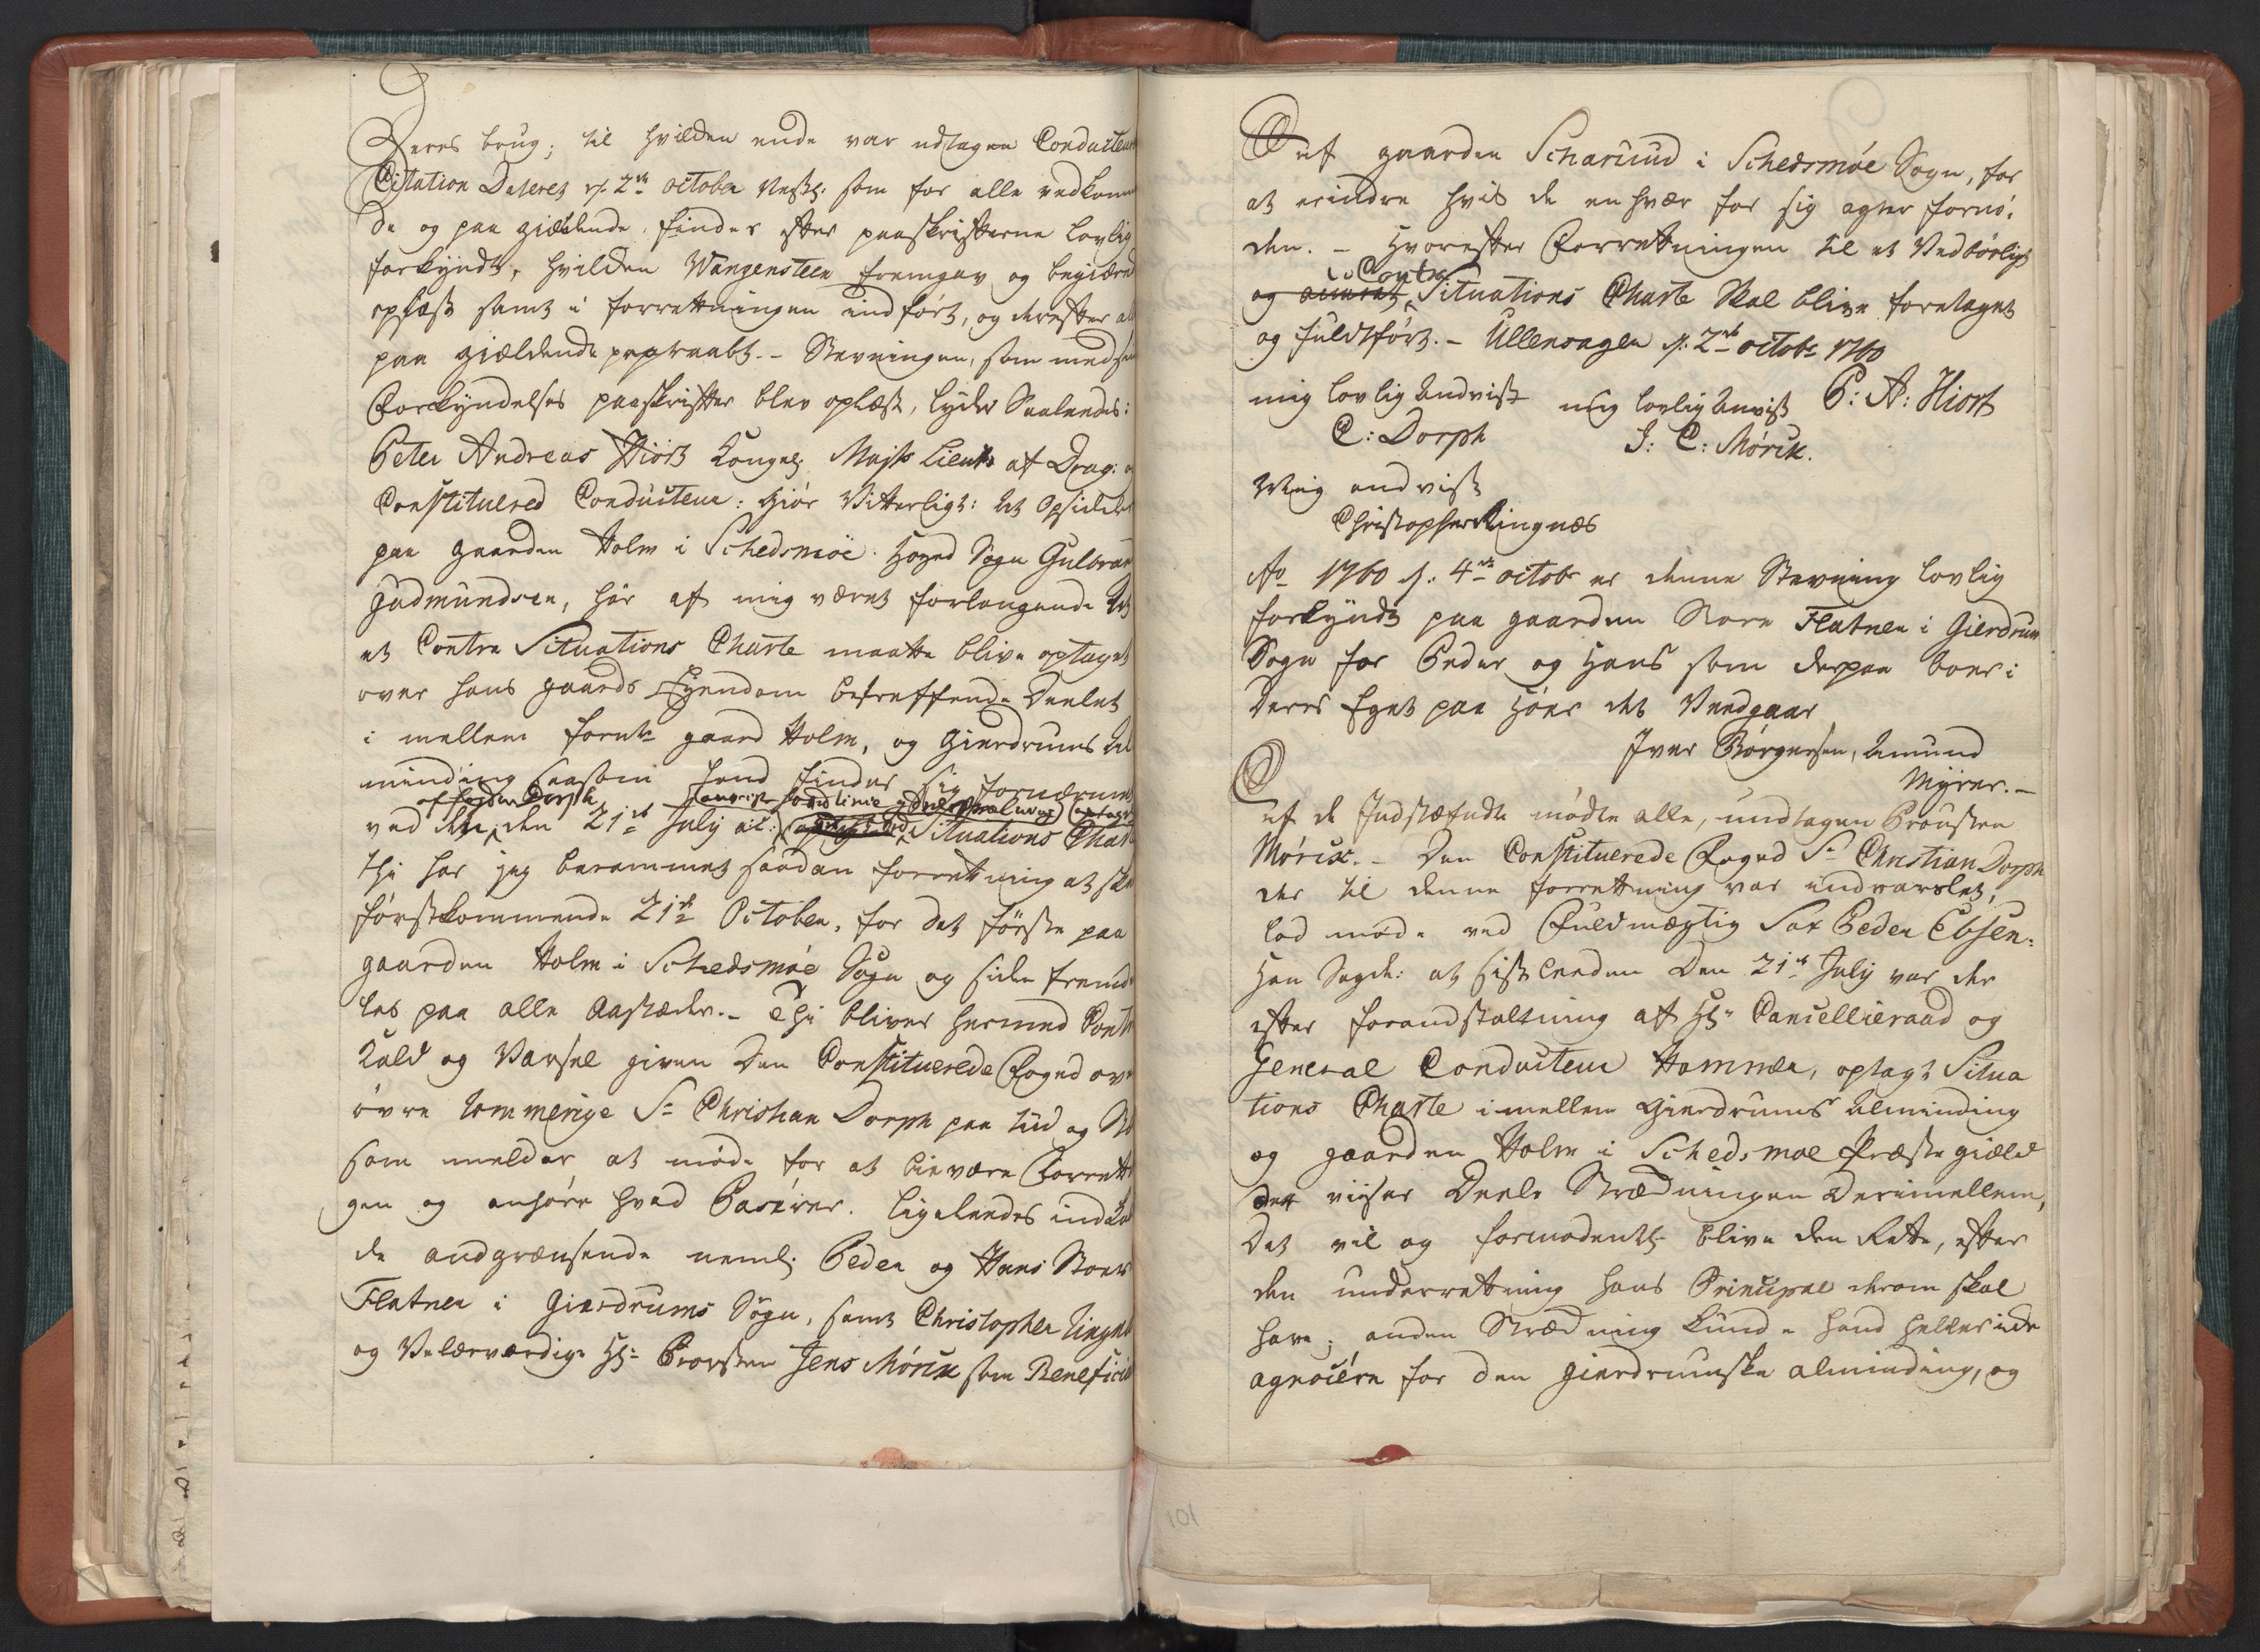 Deres brug; til hvilken ende var udtagen Conducteur
Citation Dateret d: 2de octobr nestl: som for alle vedkom
de og paa gieldende findes efter paaskrifterne lovlig
forkyndt, hvilken Wangensteen fremgav og begierede
oplæst samt i forretningen indført, og derefter a
paa gieldende paaraabt. – Stevningen, som med
Forkyndelses paaskrifter blev oplæst, lyder Saaledes:
Peter Andreas Hiort Kongel: Majts Lieut: af Drag: o
Constituered Conducteur: Giør Vitterligt: At Opsidderen
paa gaarden Holm i Schedsmoe Hoved Sogn Gulbran
Gudmundsen, har af mig været forlangende At
et Contra Situations Charte maatte blive optaget
over hans gaards Eyendom betreffende Deelet
i mellem fornte gaard Holm, og Gierdrums Al
minding saasom hand finder sig fornærmet
af fogden Dorph
ved den den 21de July a.c: Situations Chart
thi har jeg berammet saadan forretning at skee
førstkommende 21de October, for det første paa
gaarden Holm i Schedsmoe Sogn og siden fremde
les paa alle Aastæder. – Thi bliver hermed Contr
Kald og Varsel given Den Constituerede Foged ov
øvre Rommerige Sr Christian Dorph paa tiid og St
som melder at møde for at bievære Forrett
gen og anhøre hvad Passerer. ligeleedes indk
de andgrænsende neml: Peder og Hans Store
Flatner i Gierdrums Sogn, samt Christopher Ringnæs
og Velærværdige Hr: Provsten Jens Mørck som Benefici
Auf gaarden Scharuud i Schedsmoe Sogn, for
at erindre hvis de en hver for sig agter fornø:
den. – Hvorefter Forretningen til et Vedbørligt
Contra
og accurat Situations Charte Skal blive foretaget
og fuldført. – Ullensagen d: 2de octobr 1760
mig lovlig Andvist mig lovlig Anvist P: A: Hiort
C: Dorph J: C: Mørck.
Mig andvist
Christopher Ringnæs
Ao 1760 d: 4de octobr er denne Stevning lovlig
forkyndt paa gaarden Store Flatner i Gierdrum
Sogn for Peder og Hans som derpaa boer i
Deres Eget paa Hører det Vendgaar
Iver Børgersen, Amund
Myrer. –
Af de Indstæfnte mødte alle, undtagen Provsten
Mørck. – Den Constituerede Foged Sr Christian Dorph
der til denne forretning var indvarslet,
lod møde ved Fuldmægtig Sr Peder Ebsen:
Han Sagde: at sistleeden Den 21de July var der
efter foranstaltning af Hr: Cancellieraad og
General Conducteur Hammer, optagt Situa
tions Charte imellem Gierdrums Alminding
og gaarden Holm i Schedsmoe Præstegield
der viiser Deele Strædningen Derimellem,
Det vil og formodentl: blive den Rette, efter
den underretning hans Principal derom skal
have; anden Strædning kunde hand heller icke
agnocere for den Gierdrumske alminding, og
101